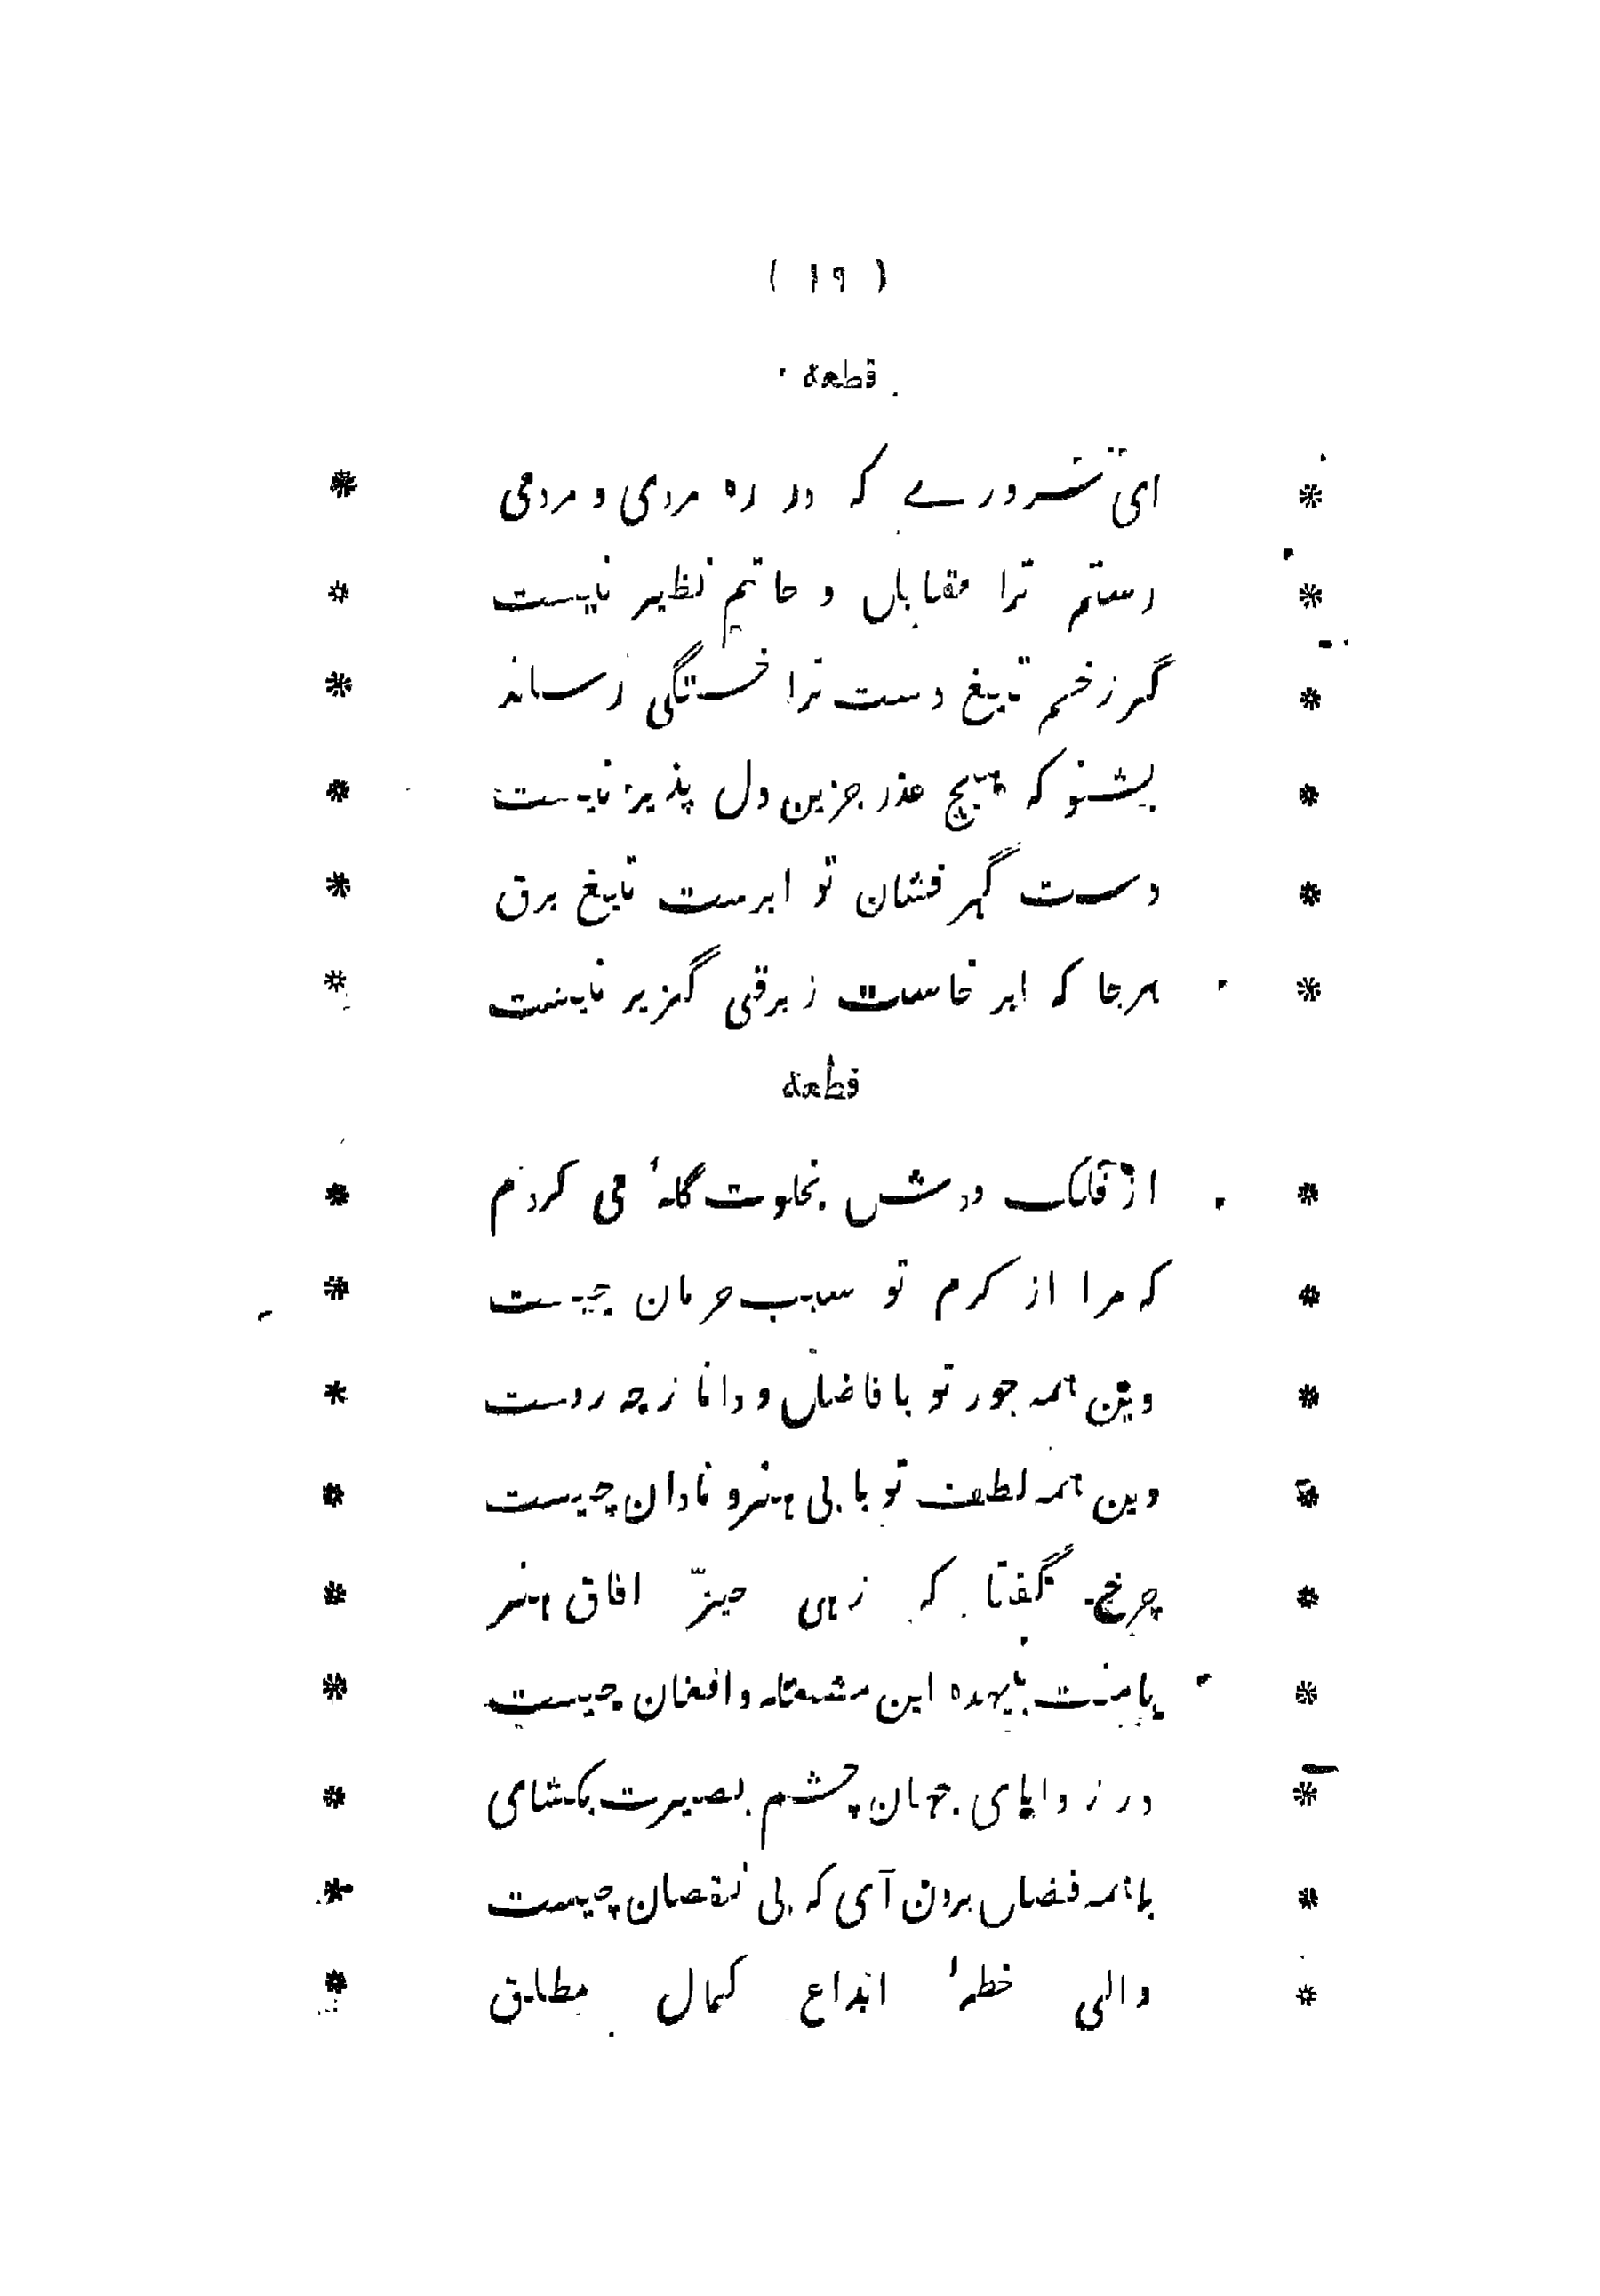 ( ۱۹ )
قطعه
* ای سرورے که در ره مردی و مردمی *
* رستم ترا مقابل و حاتم نظیر نیست *
* گر زخم تیغ دست ترا خستگی رساند *
* بشنو که هیچ عذر جزین دل پذیر نیست *
* دست گهر فشان تو ابرست تیغ برق *
* هرجا که ابر خاست ز برقی گزیر نیست *
قطعه
* از فلک دوش بخلوت گلهٔ می کردم *
* که مرا از کرم تو سبب حرمان چیست *
* وین همه جور تو با فاضل و دانا ز چه روست *
* وین همه لطف تو با بی هنر و نادان چیست *
* چرخ گفتا که زهی حیّز افاق هنر *
* با منت بیهده این مشعله و افغان چیست *
* در زوایای جهان چشم بصیرت بکشای *
* با همه فضل برون آی که بی نقصان چیست *
* والی خطهٔ ابداع کمال مطلق *